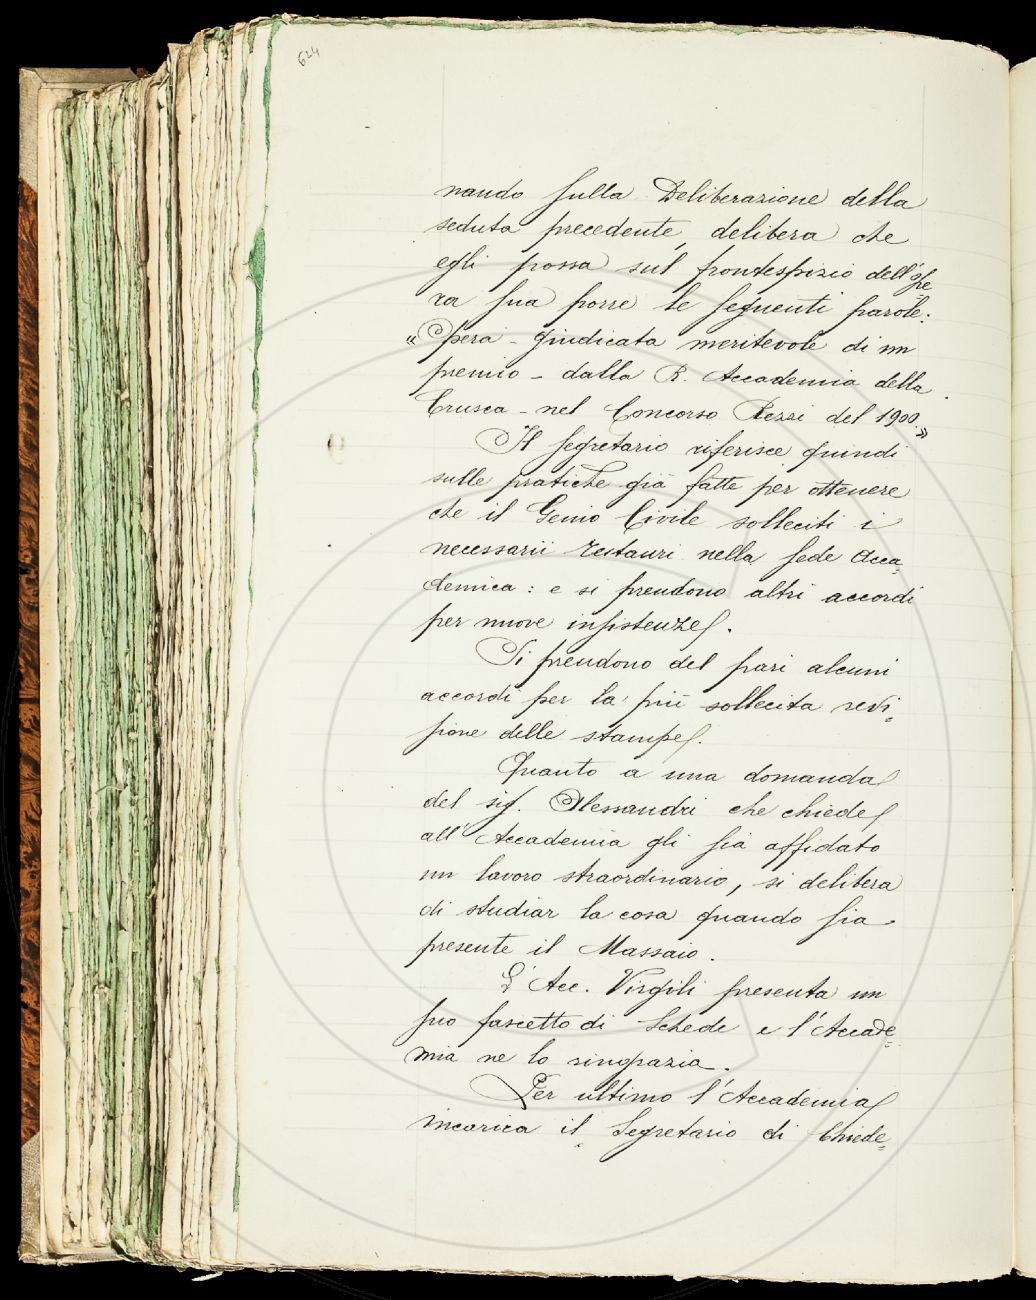 624
nando sulla Deliberazione della
seduta precedente, delibera che
egli possa sul frontespizio dell'ope
ra sua porre le seguenti parole:
"Opera - giudicata meritevole di un
premio - dalla R. Accademia della
Crusca - nel Concorso Rezzi del 1900."
Il segretario riferisce quindi
sulle pratiche già fatte per ottenere
che il Genio Civile solleciti i
necessarii restauri nella sede Acca=
demica: e si prendono altri accordi
per nuove insistenze.
Si prendono del pari alcuni
accordi per la più sollecita revi=
sione delle stampe.
Quanto a una domanda
del sig. Alessandri che chiede
all'Accademia gli sia affidato
un lavoro straordinario, si delibera
di studiar la cosa quando sia
presente il Massaio.
L'Acc. Virgili presenta un
suo fascetto di Schede e l'Accade=
mia ne lo ringrazia.
Per ultimo l'Accademia
incarica il Segretario di Chiede=